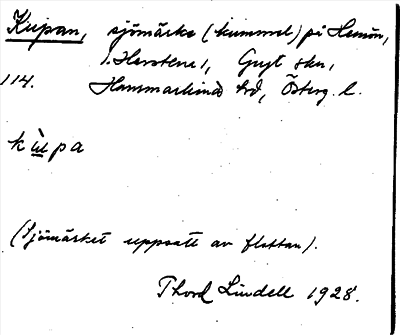 Kupan, sjömärke (kummel) på Hemön,
1. Harstena 1, Gryt skn,
114. Hammarkinds hd, Österg. l.
kùpa
(Sjömärket uppsatt av flottan).
Thord Lindell 1928.